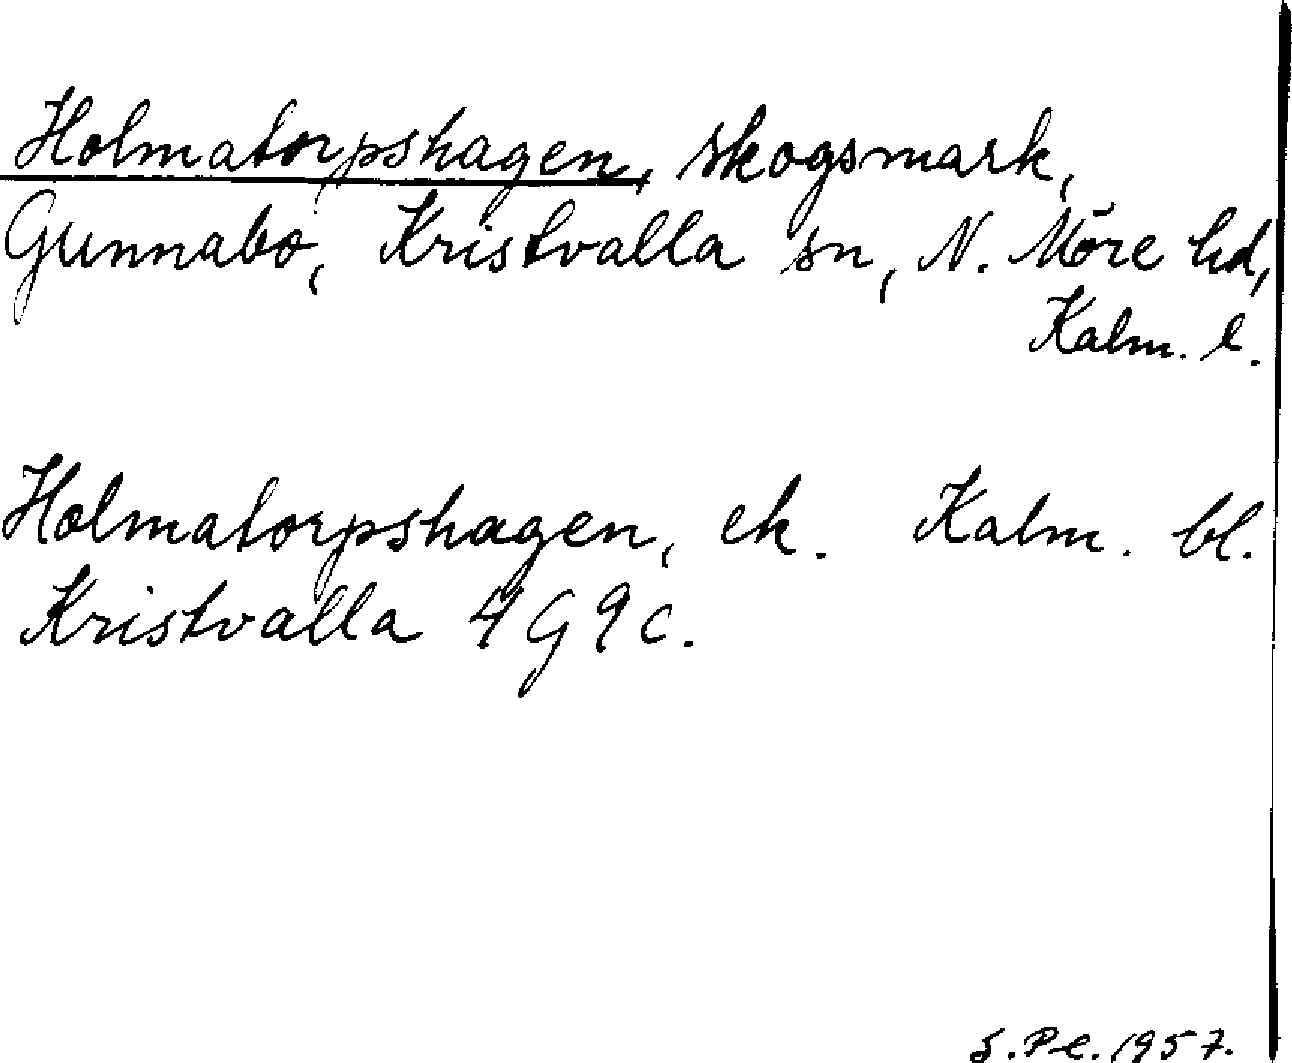 Holmatorpshagen, skogsmark,
Gunnabo, Kristvalla sn, N. Möre hd,
Kalm. l.
Holmatorpshagen, ek. Kalm. bl.
Kristvalla 4G9c.
S.Pl. 1957.